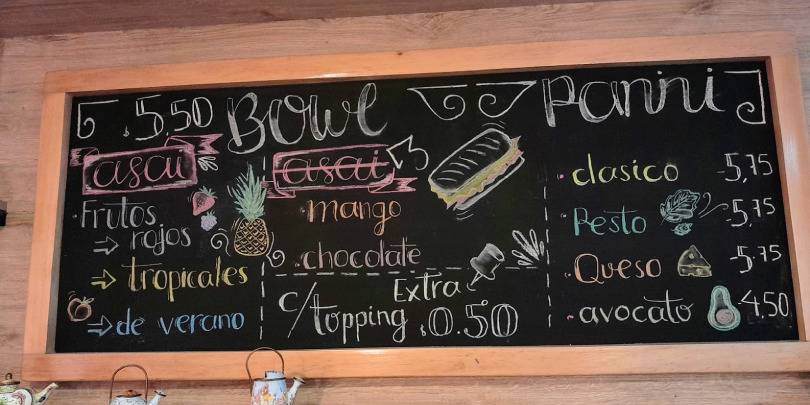 5.50 Bowl
asai
Frutos
⇒ rojos
⇒ tropicales
⇒ de verano
asai
mango
chocolate
c/topping Extra 0.50
Panini
clasico -5,75
Pesto -5,75
Queso -5.75
avocato -4,50